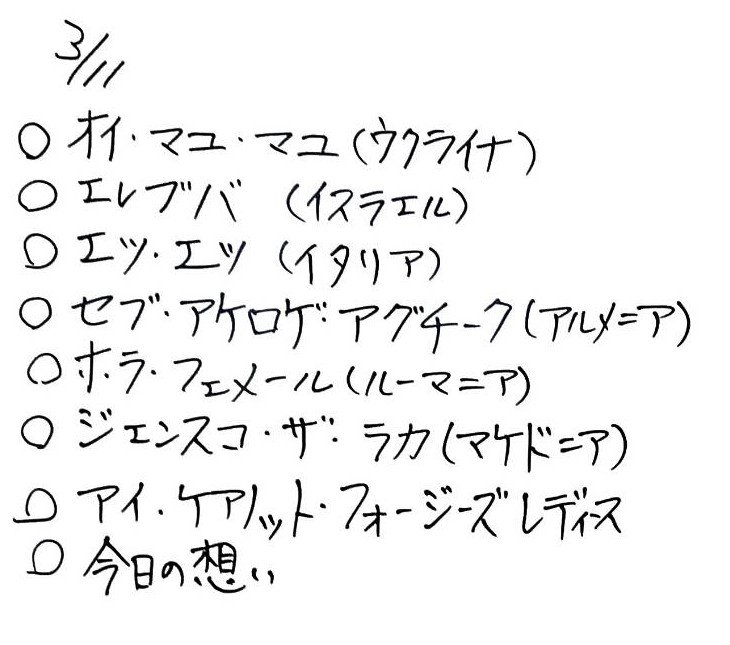 3/11
○ オイ・マユ・マユ(ウクライナ)
○ エレブバ (イスラエル)
○ エツ・エツ (イタリア)
○ セブ・アケロゲ・アグチーク(アルメニア)
○ ホラ・フェメール(ルーマニア)
○ ジェンスコ・ザ・ラカ(マケドニア)
○ アイ・ケアノット・フォージーズレディース
○ 今日の想い